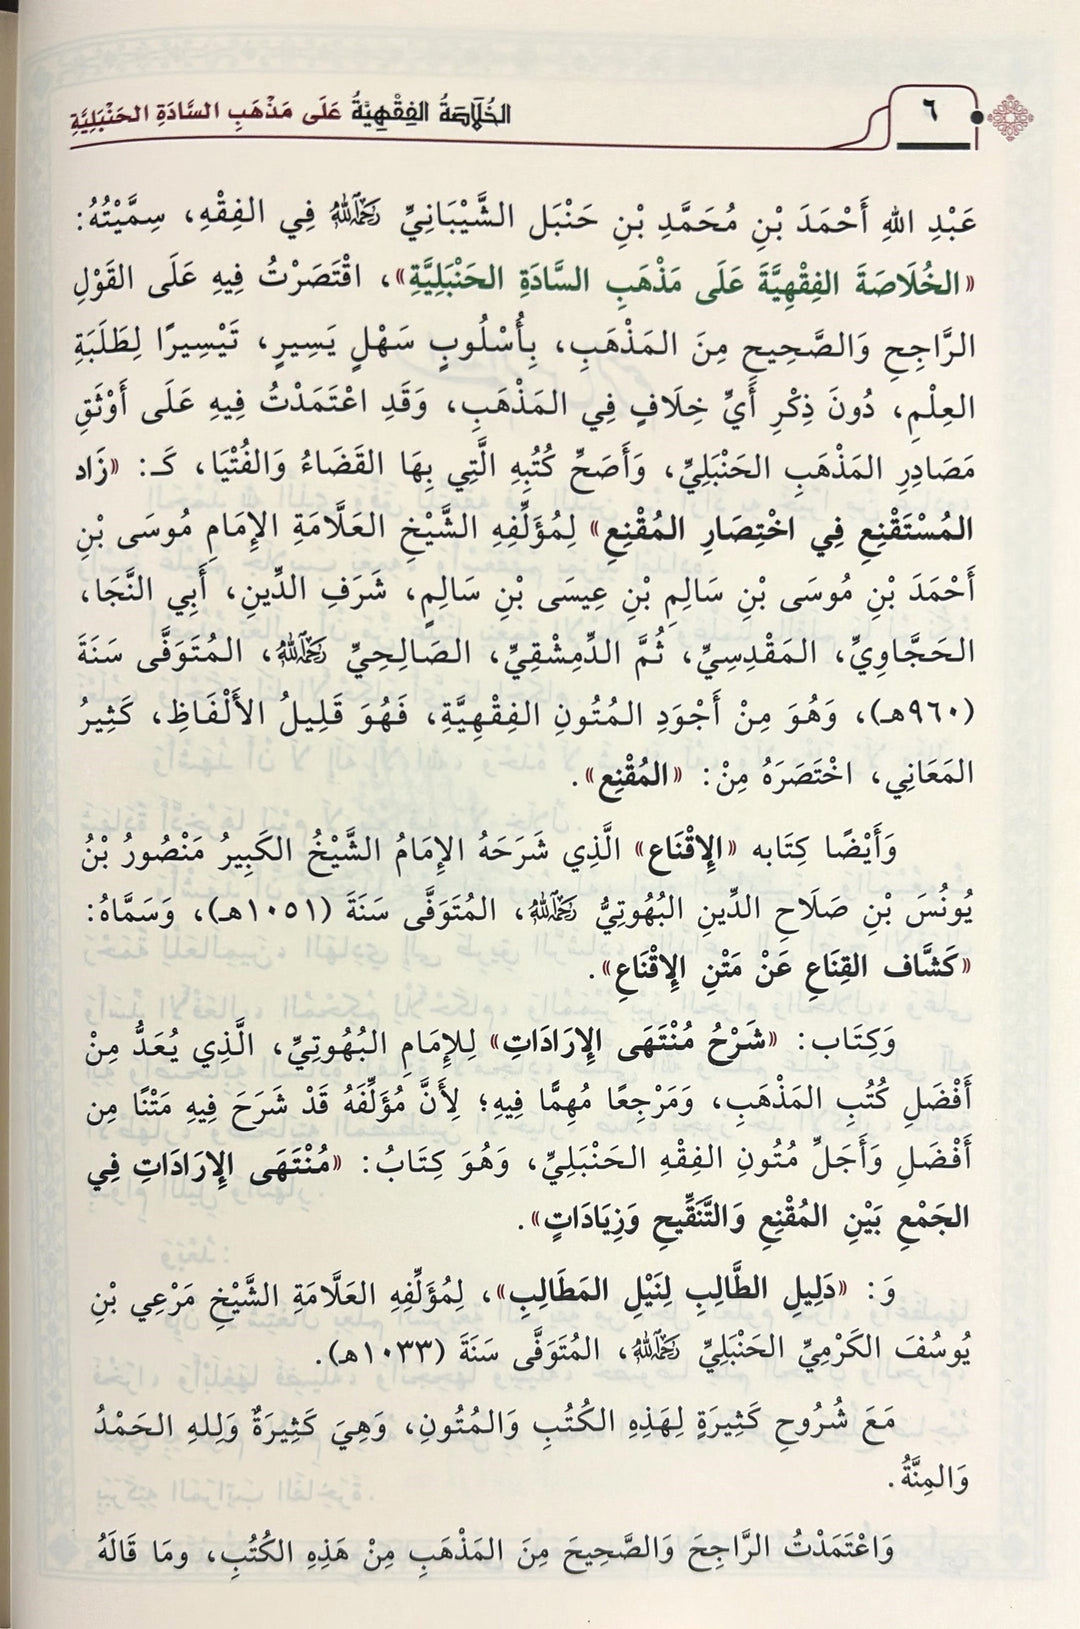 ٦
الخُلَاصَةُ الفِقْهِيَّةُ عَلَى مَذْهَبِ السَّادَةِ الحَنْبَلِيَّةِ
عَبْدِ اللهِ أَحْمَدَ بْنِ مُحَمَّدِ بْنِ حَنْبَل الشَّيْبَانِيِّ رَحِمَهُ اللهُ فِي الفِقْهِ، سِمَّيْتُهُ:
«الخُلَاصَةَ الفِقْهِيَّةَ عَلَى مَذْهَبِ السَّادَةِ الحَنْبَلِيَّةِ»، اقْتَصَرْتُ فِيهِ عَلَى القَوْلِ
الرَّاجِحِ وَالصَّحِيحِ مِنَ المَذْهَبِ، بِأُسْلُوبٍ سَهْلٍ يَسِيرٍ، تَيْسِيرًا لِطَلَبَةِ
العِلْمِ، دُونَ ذِكْرِ أَيِّ خِلَافٍ فِي المَذْهَبِ، وَقَدِ اعْتَمَدْتُ فِيهِ عَلَى أَوْثَقِ
مَصَادِرِ المَذْهَبِ الحَنْبَلِيِّ، وَأَصَحِّ كُتُبِهِ الَّتِي بِهَا القَضَاءُ وَالفُتْيَا، كَـ: «زَاد
المُسْتَقْنِعِ فِي اخْتِصَارِ المُقْنِعِ» لِمُؤَلِّفِهِ الشَّيْخِ العَلَّامَةِ الإِمَامِ مُوسَى بْنِ
أَحْمَدَ بْنِ مُوسَى بْنِ سَالِمِ بْنِ عِيسَى بْنِ سَالِمٍ، شَرَفِ الدِّينِ، أَبِي النَّجَا،
الحَجَّاوِيِّ، المَقْدِسِيِّ، ثُمَّ الدِّمَشْقِيِّ، الصَالِحِيِّ رَحِمَهُ اللهُ، المُتَوَفَّى سَنَةَ
(٩٦٠هـ)، وَهُوَ مِنْ أَجْوَدِ المُتُونِ الفِقْهِيَّةِ، فَهُوَ قَلِيلُ الأَلْفَاظِ، كَثِيرُ
المَعَانِي، اخْتَصَرَهُ مِنْ: «المُقْنِع».
وَأَيْضًا كِتَابه «الإِقْنَاع» الَّذِي شَرَحَهُ الإِمَامُ الشَّيْخُ الكَبِيرُ مَنْصُورُ بْنُ
يُونُسَ بْنِ صَلَاحِ الدِّينِ البُهُوتِيُّ رَحِمَهُ اللهُ، المُتَوَفَّى سَنَةَ (١٠٥١هـ)، وَسَمَّاهُ:
«كَشَّاف القِنَاعِ عَنْ مَتْنِ الإِقْنَاعِ».
وَكِتَاب: «شَرْحُ مُنْتَهَى الإِرَادَاتِ» لِلإِمَامِ البُهُوتِيِّ، الَّذِي يُعَدُّ مِنْ
أَفْضَلِ كُتُبِ المَذْهَبِ، وَمَرْجِعًا مُهِمًّا فِيهِ؛ لِأَنَّ مُؤَلِّفَهُ قَدْ شَرَحَ فِيهِ مَتْنًا مِن
أَفْضَلِ وَأَجَلِّ مُتُونِ الفِقْهِ الحَنْبَلِيِّ، وَهُوَ كِتَابُ: «مُنْتَهَى الإِرَادَاتِ فِي
الجَمْعِ بَيْنِ المُقْنِعِ وَالتَّنَقِّيحِ وَزِيَادَاتٍ».
وَ: «دَلِيلِ الطَّالِبِ لِنَيْلِ المَطَالِبِ»، لِمُؤَلِّفِهِ العَلَّامَةِ الشَّيْخِ مَرْعِي بْنِ
يُوسُفَ الكَرْمِيِّ الحَنْبَلِيِّ رَحِمَهُ اللهُ، المُتَوَفَّى سَنَةَ (١٠٣٣هـ).
مَعَ شُرُوحٍ كَثِيرَةٍ لِهَذِهِ الكُتُبِ وَالمُتُونِ، وَهِيَ كَثِيرَةٌ وَلِلهِ الحَمْدُ
وَالمِنَّةُ.
وَاعْتَمَدْتُ الرَّاجِحَ وَالصَّحِيحَ مِنَ المَذْهَبِ مِنْ هَذِهِ الكُتُبِ، ومَا قَالَهُ